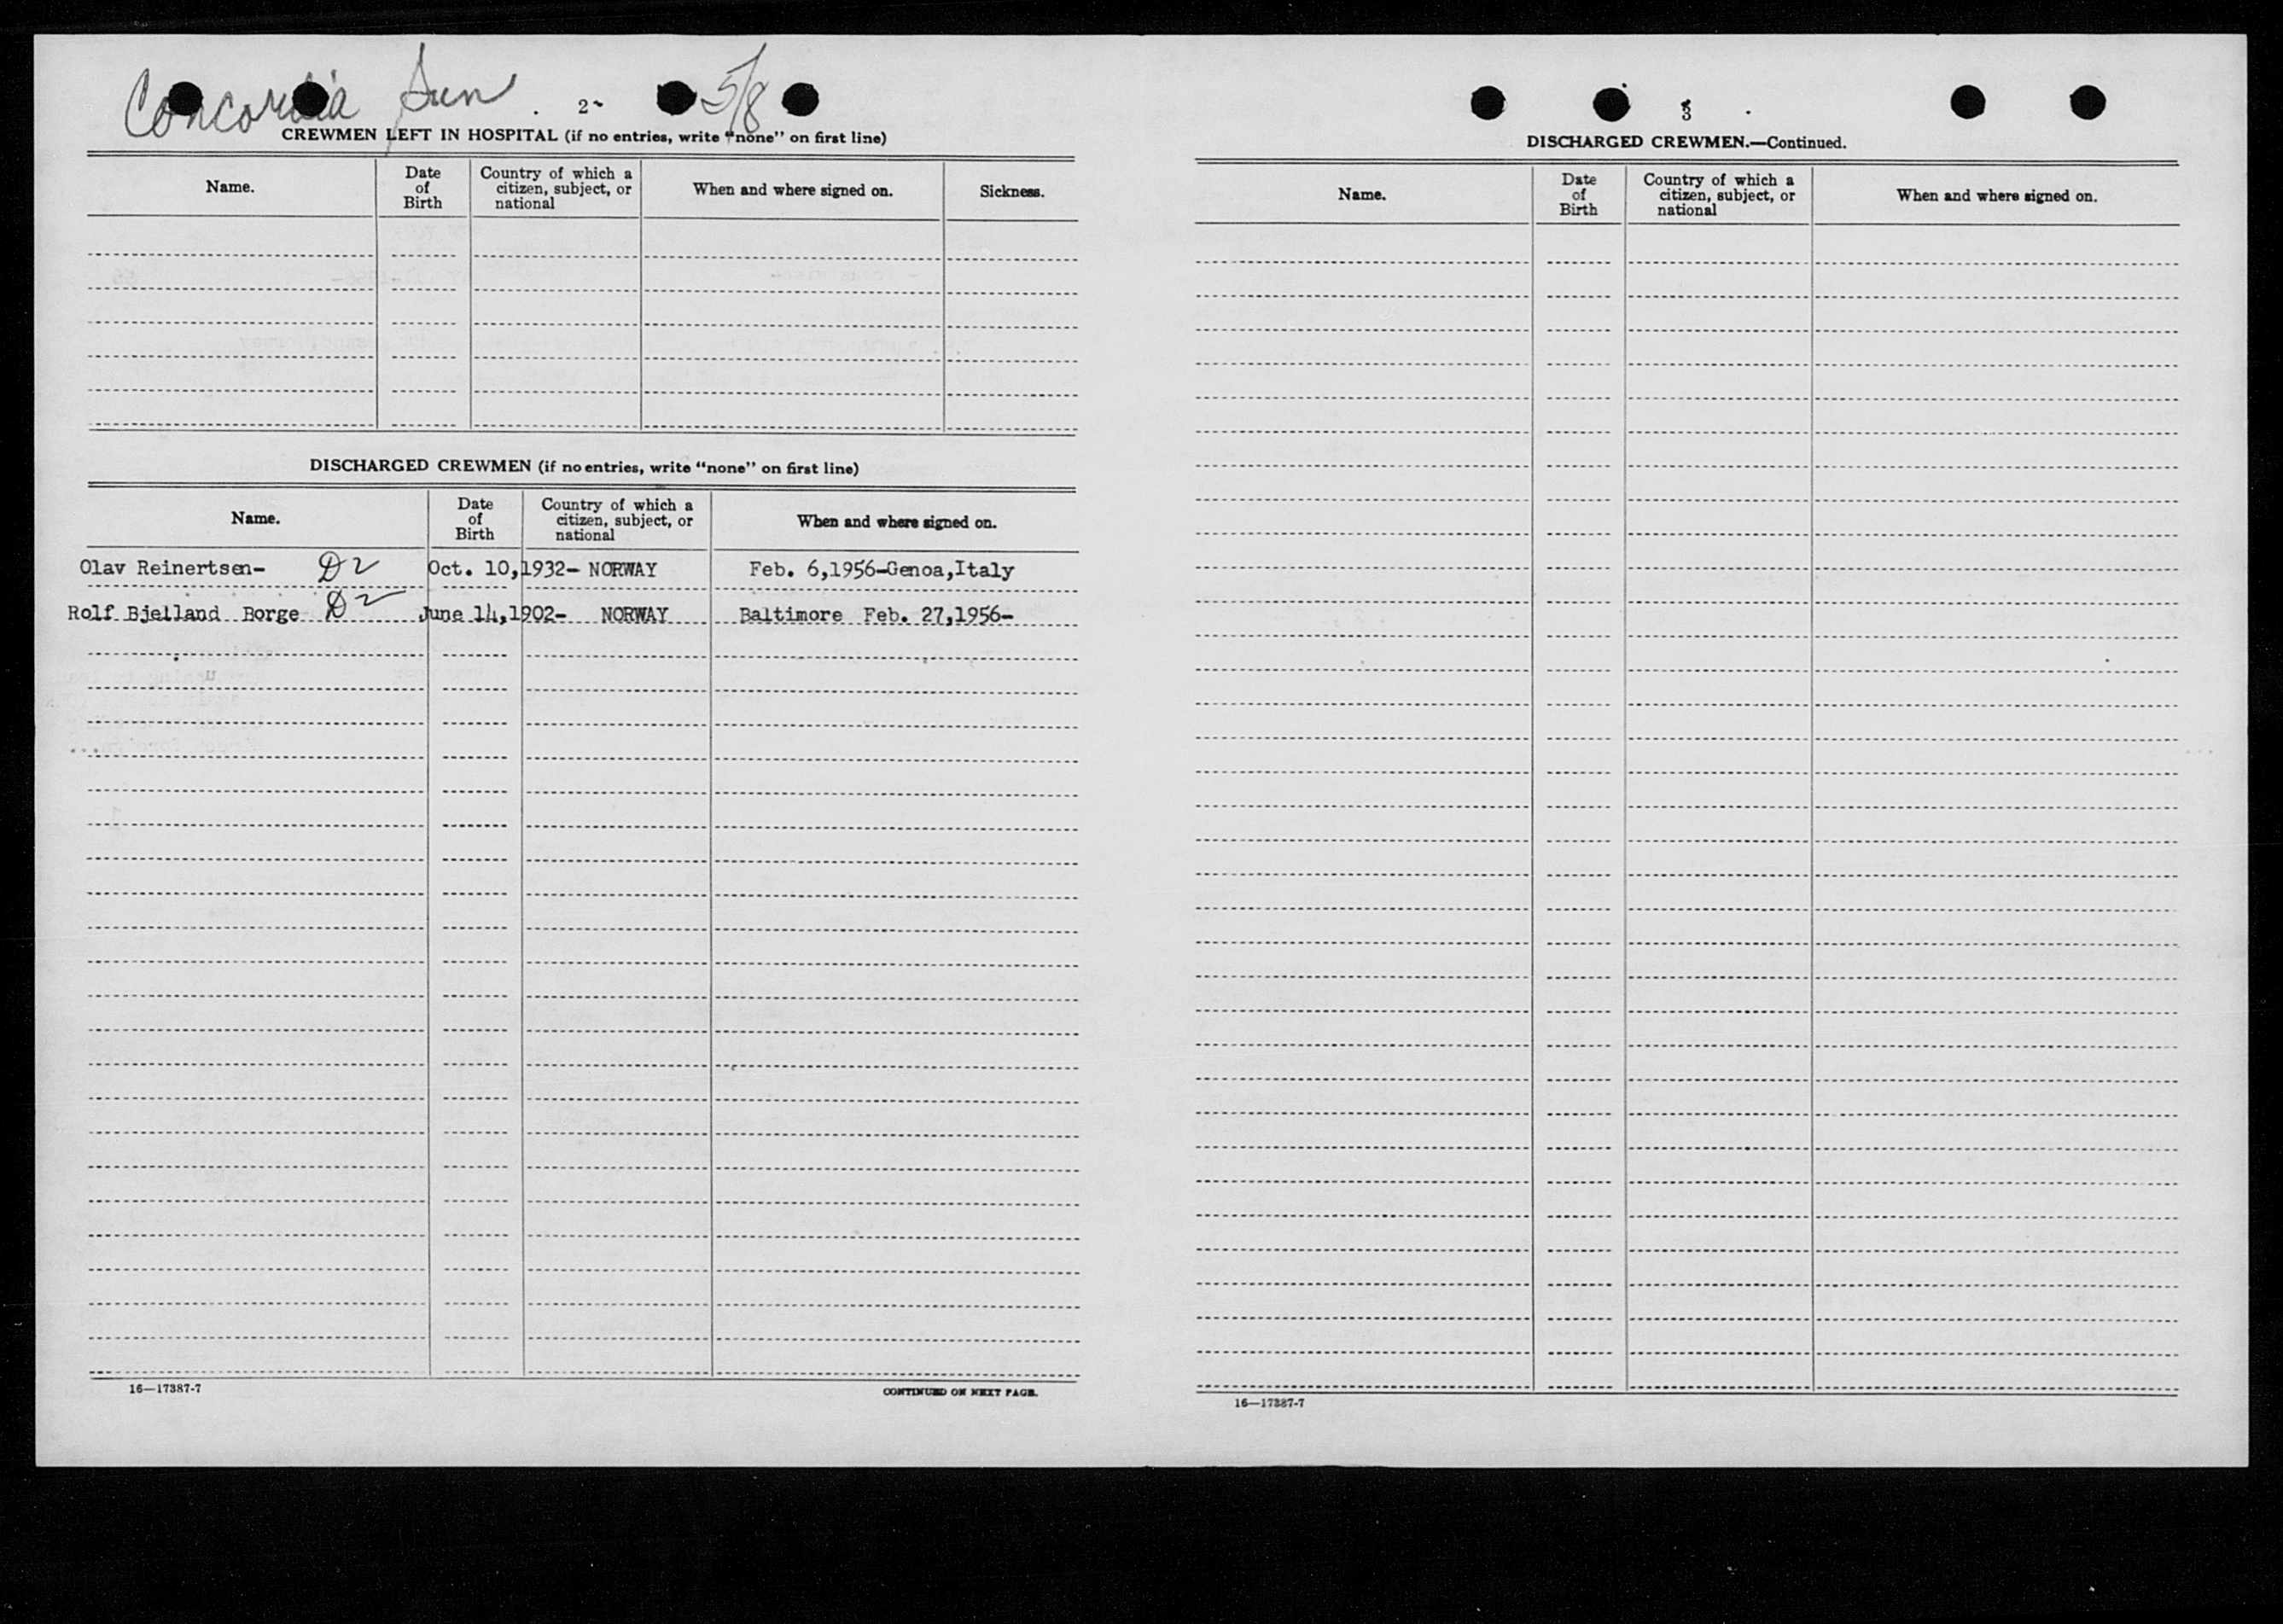 Concordia Sun 2 5/8
CREWMEN LEFT IN HOSPITAL (if no entries, write "none" on first line)
Name. Date of Birth Country of which a citizen, subject, or national When and where signed on. Sickness.
DISCHARGED CREWMEN (if no entries, write "none" on first line)
Name. Date of Birth Country of which a citizen, subject, or national When and where signed on.
Olav Reinertsen- D2 Oct. 10,1932- NORWAY Feb. 6,1956-Genoa,Italy
Rolf Bjelland Borge D2 June 14,1902- NORWAY Baltimore Feb. 27,1956-
16—17387-7 CONTINUED ON NEXT PAGE.
3
DISCHARGED CREWMEN.—Continued.
Name. Date of Birth Country of which a citizen, subject, or national When and where signed on.
16—17387-7